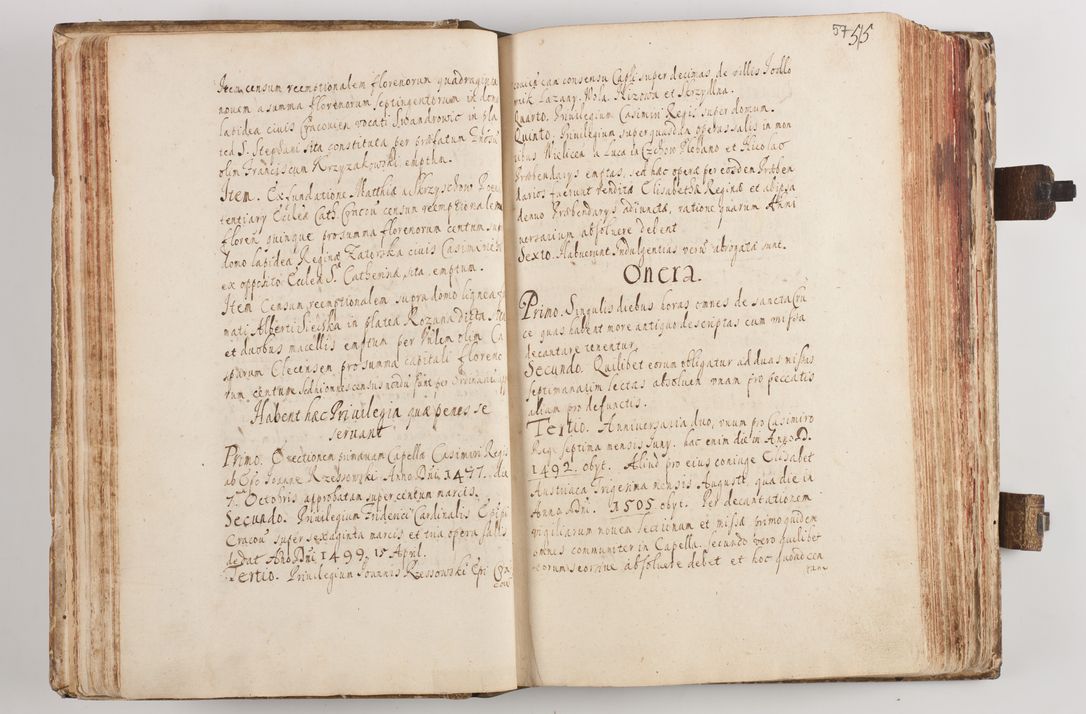 Item censum reemptionalem florenorum quadraginta
novem a summa florenorum septingentorum in domo
lapidea civis Cracovien vocati Iwandrowic in pla
tea S. Stephani sita constituta per præfatum
olim Franciscum Krzyzakowski emptum.
Item. Ex fundatione Matthiæ a Skrzyschow Poeni
tentiary Ecclea Cath. Cracou censum reemptionalem
floren quinque pro summa florenorum centum super
domo lapidea Reginæ Zatorska civis Casimirien
ex opposito Ecclea S. Catherina sita, emptum.
Item Censum reemptionalem supra domo lignea
nati Alberti Sieyska in platea Rozana dicta
et duobus macellis emptum per olim
sparum Clecensem pro summa capitali floreno
rum centum sed hi omnes census
Habent hæc Privilegia quæ penes se
servant
Primo. Erectionem primævam Capellæ Casimiri Regis
ab Epo Ioanne Rzessowski Anno Dni 1477. die
7. Octobris approbatam super centum marcis.
Secundo. Privilegium Friderici Cardinalis Epi
Cracou super sexaginta marcis et tria opera salis
dedat Ano Dni 1499. 15 April.
Tertio. Privilegium Ioannis Rzessowski Epi Cra
cou
57 55
covien cum consensu Capli super decimas de villis Iodlo
wnik Lazany, Wola, Kizowa et Skrzydlna.
Quarto. Privilegium Casimiri Regis super domum.
Quinto. Privilegium super quædam opera salis in mon
tibus Wielicen a Luca de Czchow Plebano et Nicolao
Præbendarys emptas, sed hæc opera per eosdem Præben
darios fuerunt vendita Elisabethæ Reginæ et ab ipsa
denuo Præbendarys adiuncta, ratione quarum Anni
versarium absoluere debent
Sexto. Habuerunt Indulgentias verum abrogatæ sunt.
Onera.
Primo. Singulis diebus horas omnes de sancta Cru
ce quas habent more antiquo descriptas cum missa
decantare tenentur.
Secundo. Quilibet eorum obligatur ad duas missas
septimanatim lectas absoluen unam pro peccatis
aliam pro defunctis.
Tertio. Anniversaria duo, unum pro Casimiro
Rege septima mensis Iuny. hac enim die in Anno D.
1492. obyt. Aliud pro eius coniuge Elisabet
Austriaca Trigesima mensis Augusti qua die in
Anno Dni. 1505 obyt. Per decantationem
vigiliarum novem lectionum et missa primo quidem
omnes communiter in Capella, secundo vero quilibet
eorum seorsive absoluere debet et hoc quoad con
tam